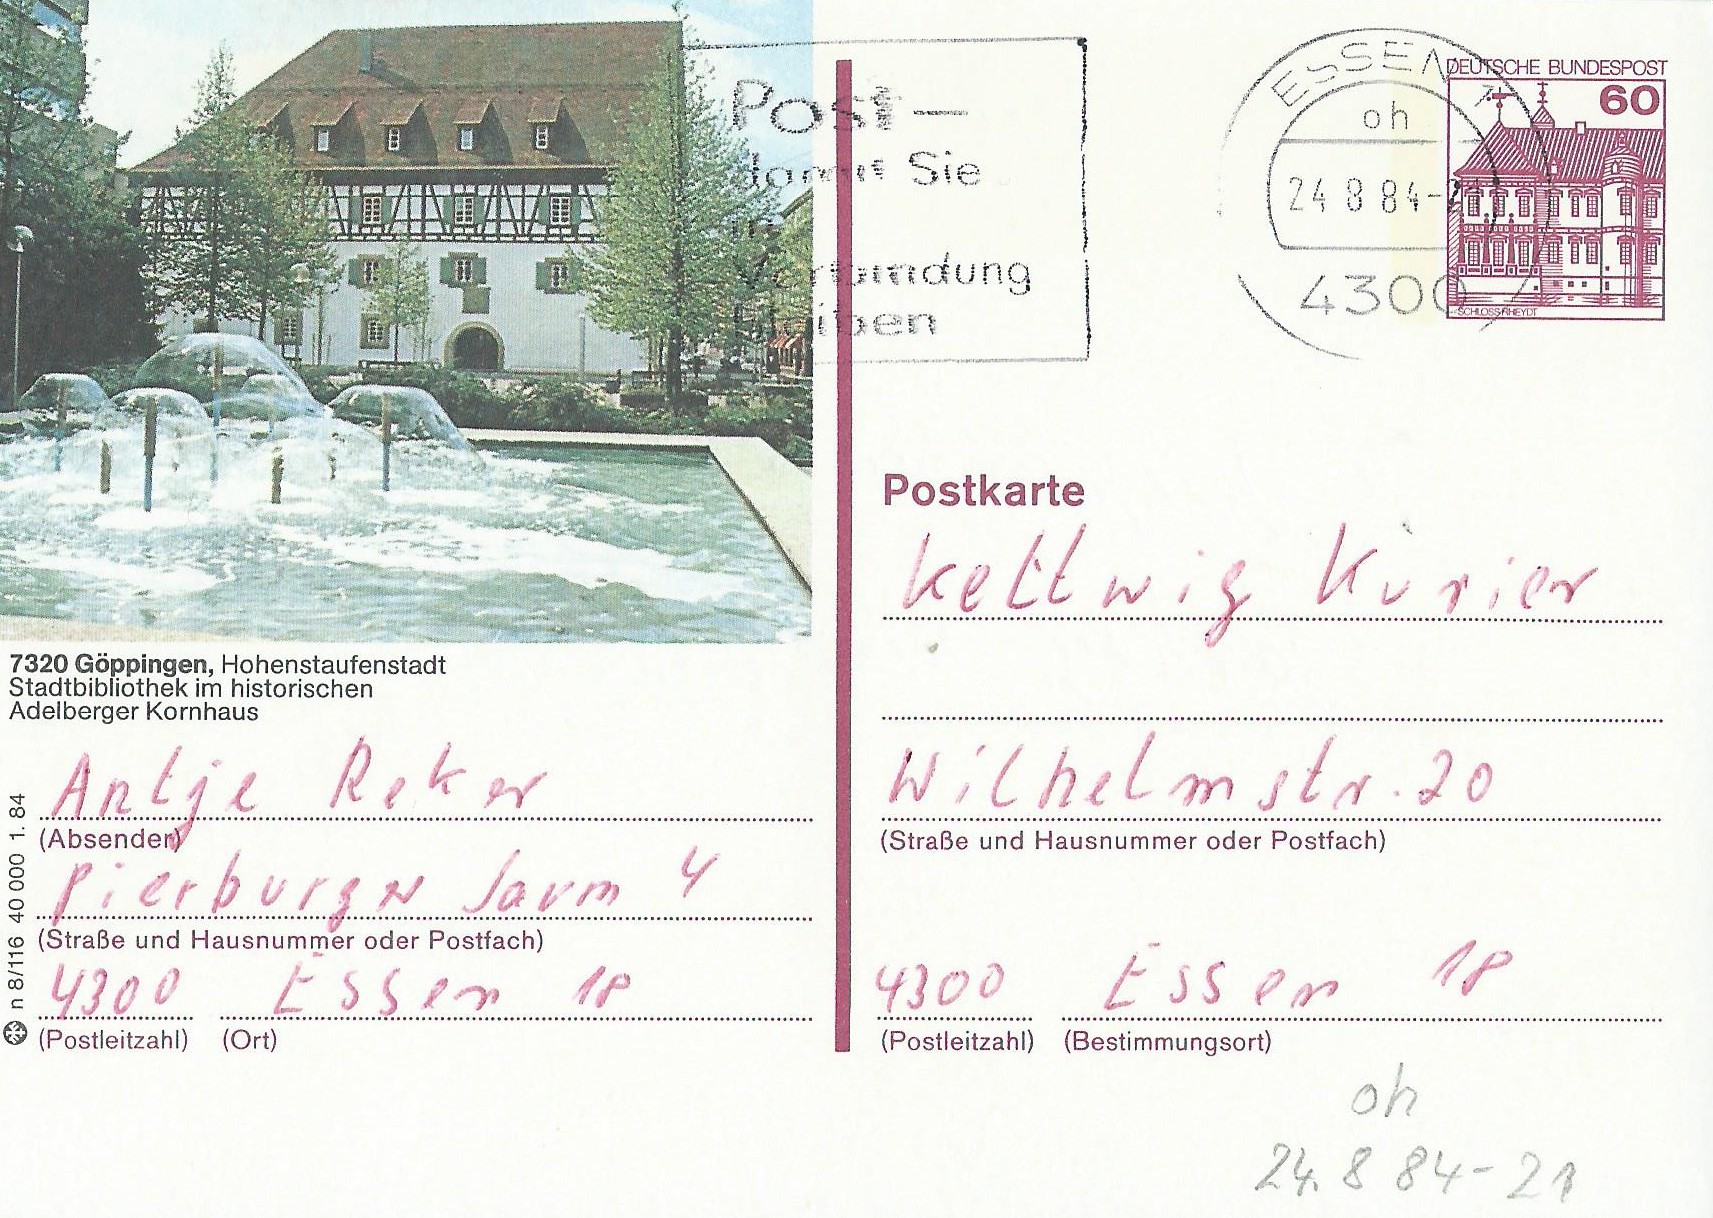 Post-
damit Sie
in
Verbindung
bleiben
ESSEN 1
oh
24.8.84-21
4300
DEUTSCHE BUNDESPOST
60
SCHLOSS RHEYDT
Postkarte
Kettwig Kurier
Wilhelmstr. 20
(Straße und Hausnummer oder Postfach)
4300 Essen 18
(Postleitzahl) (Bestimmungsort)
7320 Göppingen, Hohenstaufenstadt
Stadtbibliothek im historischen
Adelberger Kornhaus
Antje Reker
(Absender)
Pierburger Saum 4
(Straße und Hausnummer oder Postfach)
4300 Essen 18
(Postleitzahl) (Ort)
n 8/116 40 000 1. 84
oh
24.8 84-21